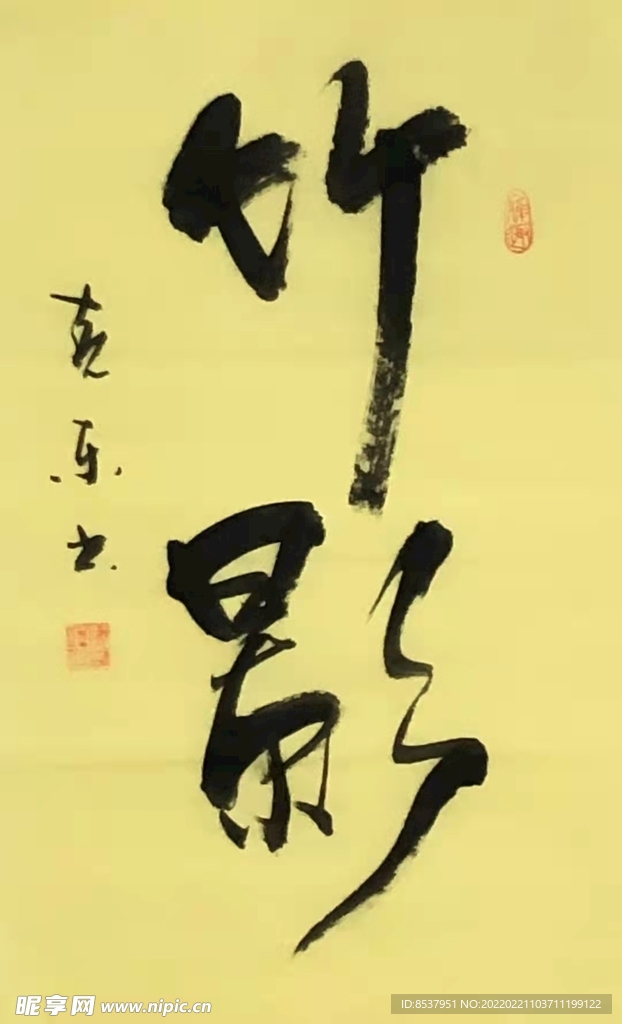 竹影
克东书
昵享网 www.nipic.cn
ID:8537951 NO:20220221103711199122